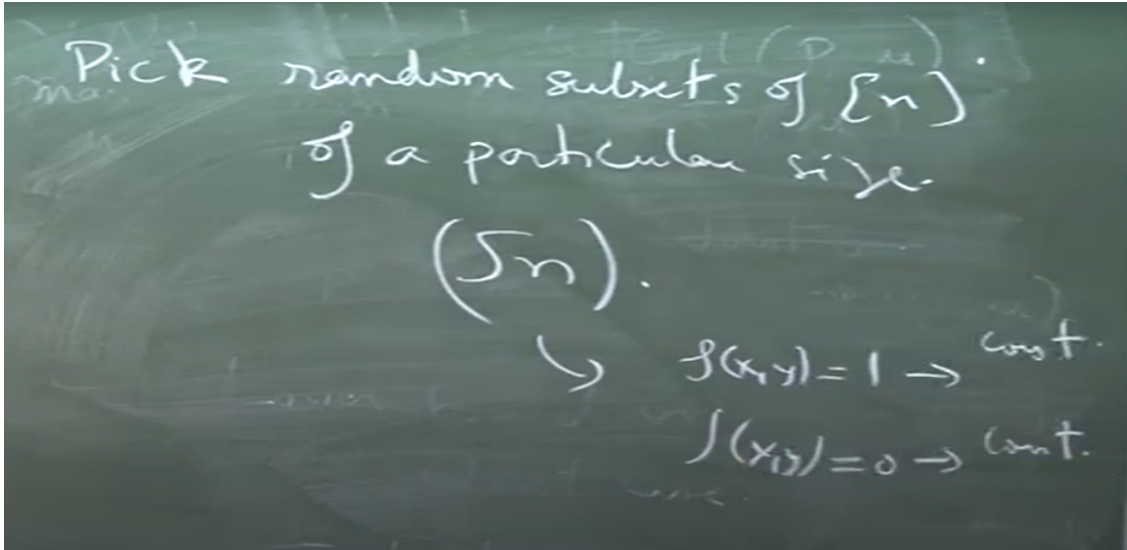 Pick random subsets of [n]
of a particular size.
(√n).
↘ f(x,y) = 1 → const.
f(x,y) = 0 → const.